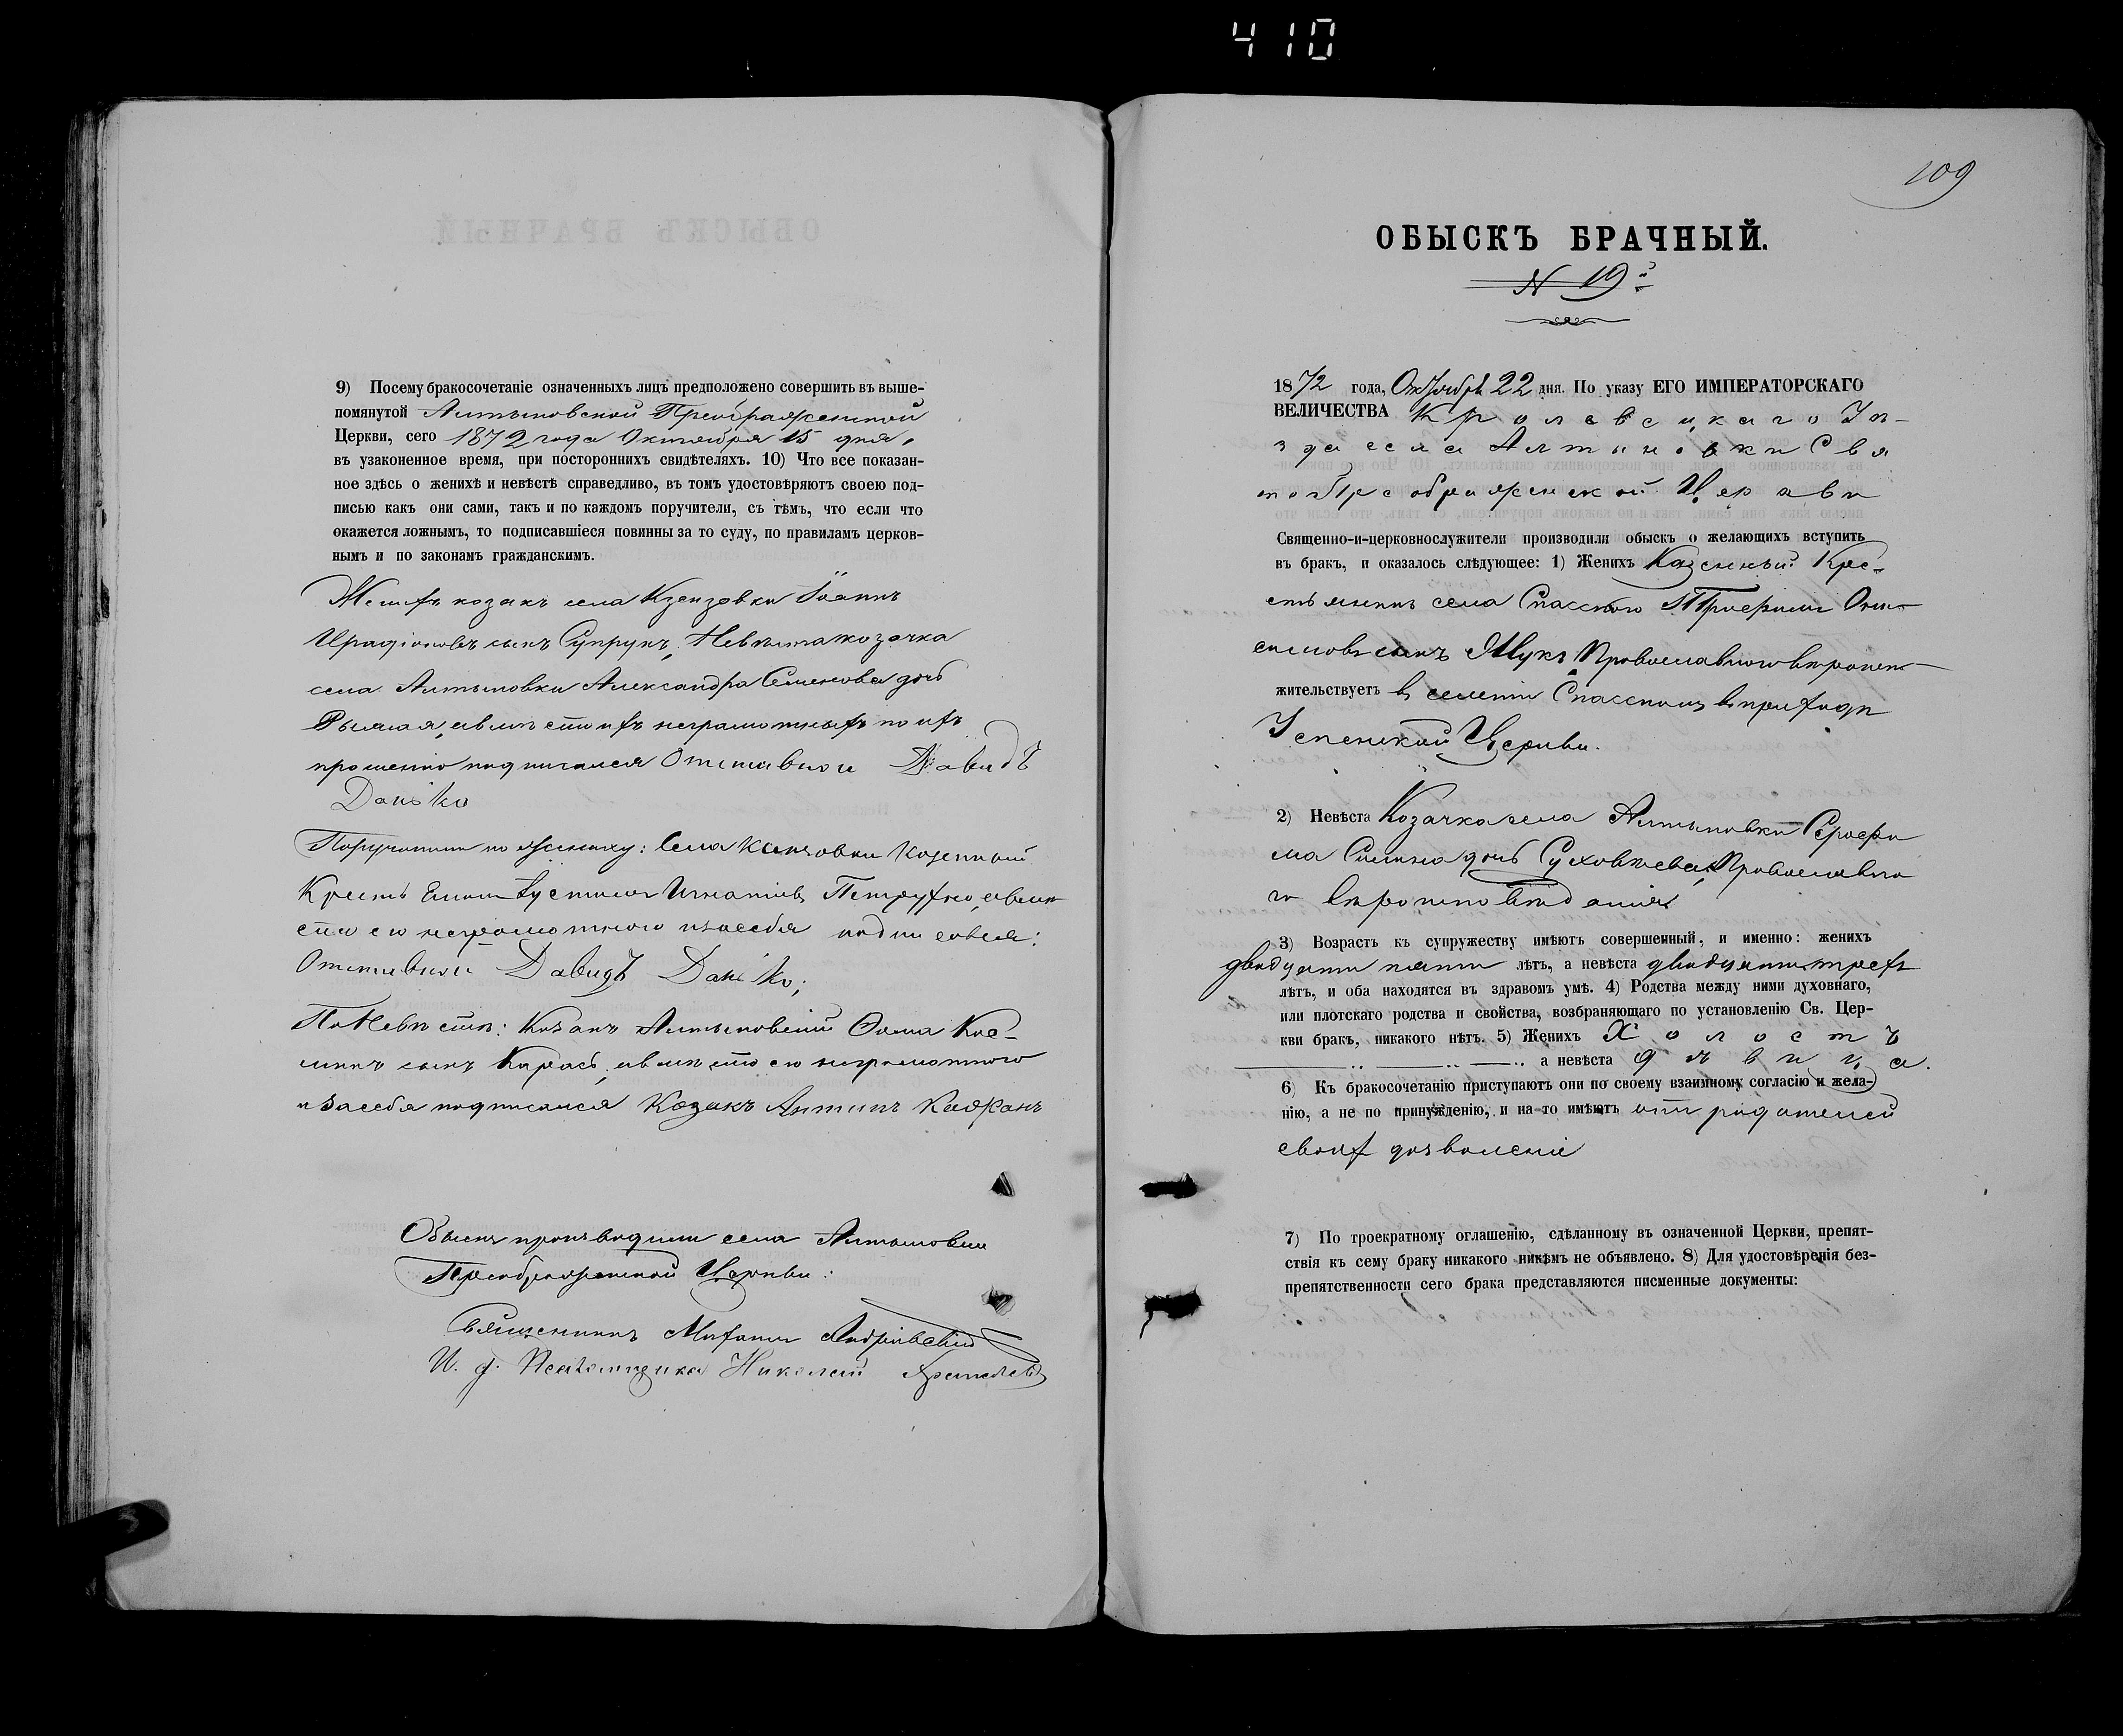 410
9) Посему бракосочетаніе означенныхъ лицъ предположено совершить въ выше-
помянутой Алтыновской Преображенской
Церкви, сего 1872 года Октября 15 дня,
въ узаконенное время, при постороннихъ свидѣтеляхъ. 10) Что все показан-
ное здѣсь о женихѣ и невѣстѣ справедливо, въ томъ удостовѣряютъ своею под-
писью какъ они сами, такъ и по каждомъ поручители, съ тѣмъ, что если что
окажется ложнымъ, то подписавшіеся повинны за то суду, по правиламъ церков-
нымъ и по законамъ гражданскимъ.
Женихъ козакъ села Іоаннъ
сынъ Супрунъ, Невѣста козачка
села Алтыновки Александра Семенова дочь
авмѣсто ихъ неграмотныхъ по ихъ
прошенію подписался Отставной Давидъ
Данько
Поручители по жениху: Села Козенный
Игнатіевъ Петрухно, авмѣ
сто его неграмотного изасебя подписовся:
Отставной Давидъ Данько;
По Невѣстѣ: Козакъ Алтыновскій Фома Кос-
минъ сынъ Карась, авмѣсто его неграмотного
изасебя подписался Козакъ Антипъ Каджанъ
Обыскъ производили села Алтыновки
Преображенской Церкви:
Священникъ Андріевскій
И. д. Псаломщика Николай
109
ОБЫСКЪ БРАЧНЫЙ.
N 19й
1872 года, Октября 22 дня. По указу ЕГО ИМПЕРАТОРСКАГО
ВЕЛИЧЕСТВА Кролевецкаго Уѣ-
зда села Алтыновки Свя
то Преображенской Церкви
Священно-и-церковнослужители производили обыскъ о желающихъ вступить
въ бракъ, и оказалось слѣдующее: 1) Женихъ Казенный Кре-
стьянинъ села Спасского Трофимъ Они-
симовъ сынъ Мука, Православного вѣроисп-
жительствуетъ в селении Спасскомъ в приходѣ
Успенской Церкви.
2) Невѣста Козачка села Алтыновки Серафи
ма дочь Суховѣева, Православно
го вѣроисповѣданія
3) Возрастъ къ супружеству имѣютъ совершенный, и именно: женихъ
двадцати пяти лѣтъ, а невѣста двадцати трехъ
лѣтъ, и оба находятся въ здравомъ умѣ. 4) Родства между ними духовнаго,
или плотскаго родства и свойства, возбраняющаго по установленію Св. Цер-
кви бракъ, никакого нѣтъ. 5) Женихъ Холостъ
а невѣста дѣвица.
6) Къ бракосочетанію приступаютъ они по своему взаимному согласію и жела-
нію, а не по принужденію, и на то имѣютъ отъ родителей
своихъ дозволеніе
7) По троекратному оглашенію, сдѣланному въ означенной Церкви, препят-
ствія къ сему браку никакого никѣмъ не объявлено. 8) Для удостовѣренія без-
препятственности сего брака представляются писменные документы: